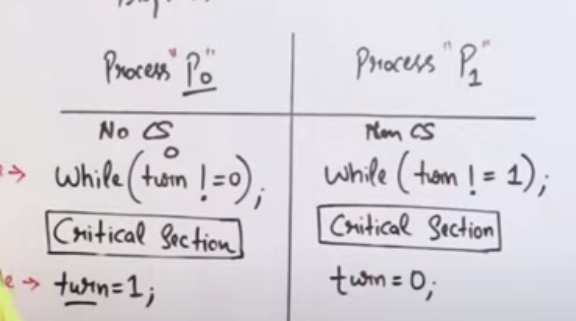 Process "P0"
Process "P1"
No CS
Non CS
0
While (turn != 0);
while (turn != 1);
Critical Section
Critical Section
turn = 1;
turn = 0;